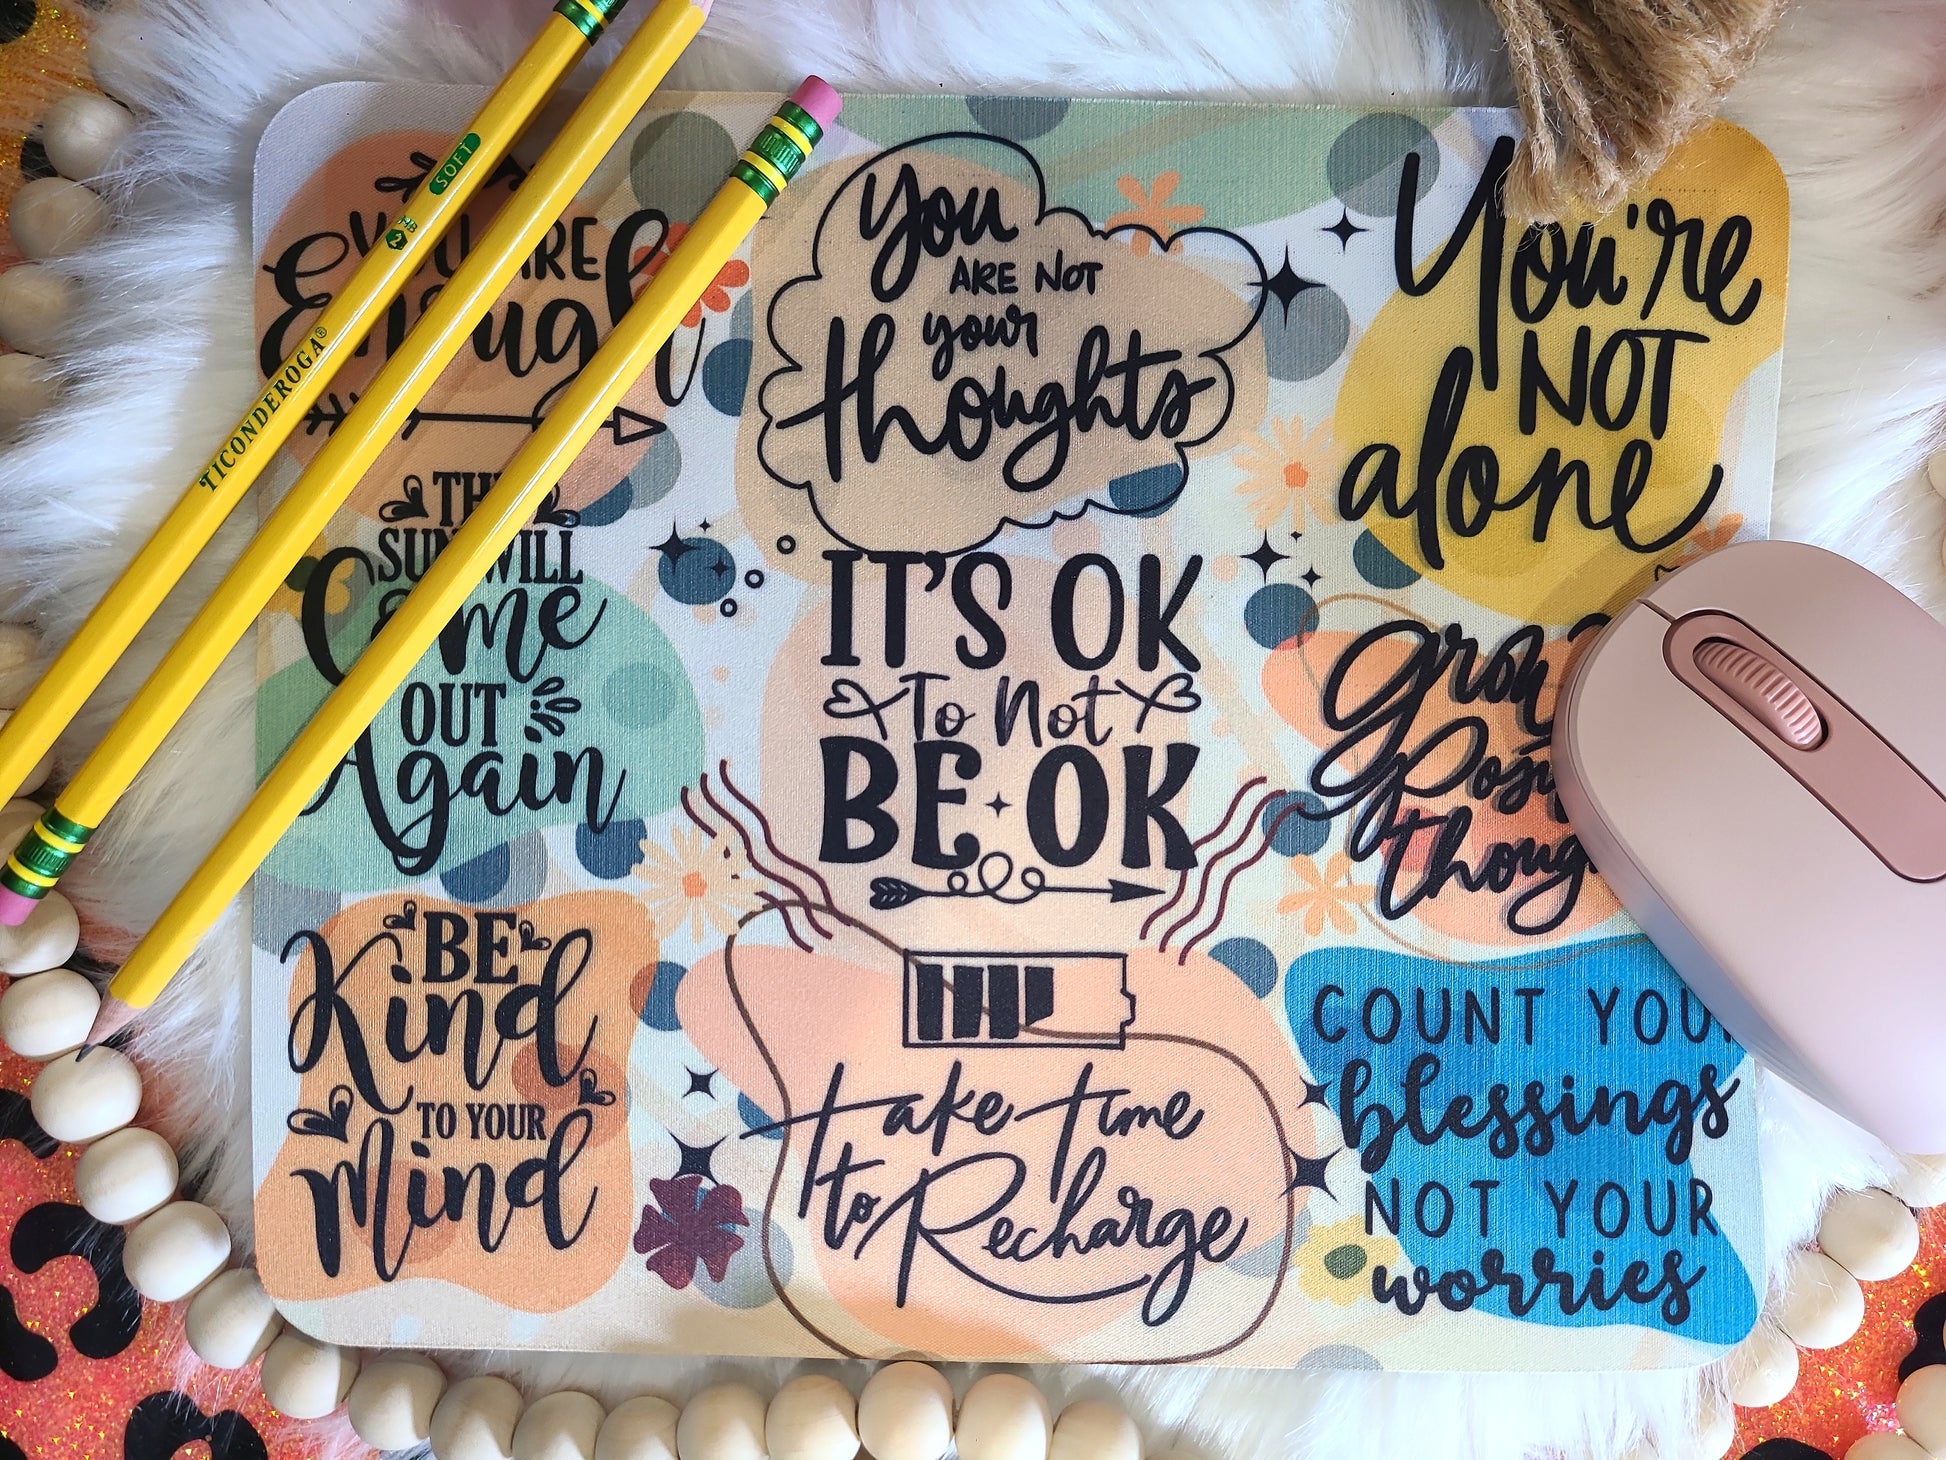 YOU ARE
Enough
You
ARE NOT
your
thoughts
You're
NOT
alone
THE
SUN WILL
Come
OUT
Again
IT'S OK
To Not
BE OK
grow
Posi
thoug
BE
Kind
TO YOUR
Mind
take time
to Recharge
COUNT YOUR
blessings
NOT YOUR
worries
TICONDEROGA®
SOFT
2